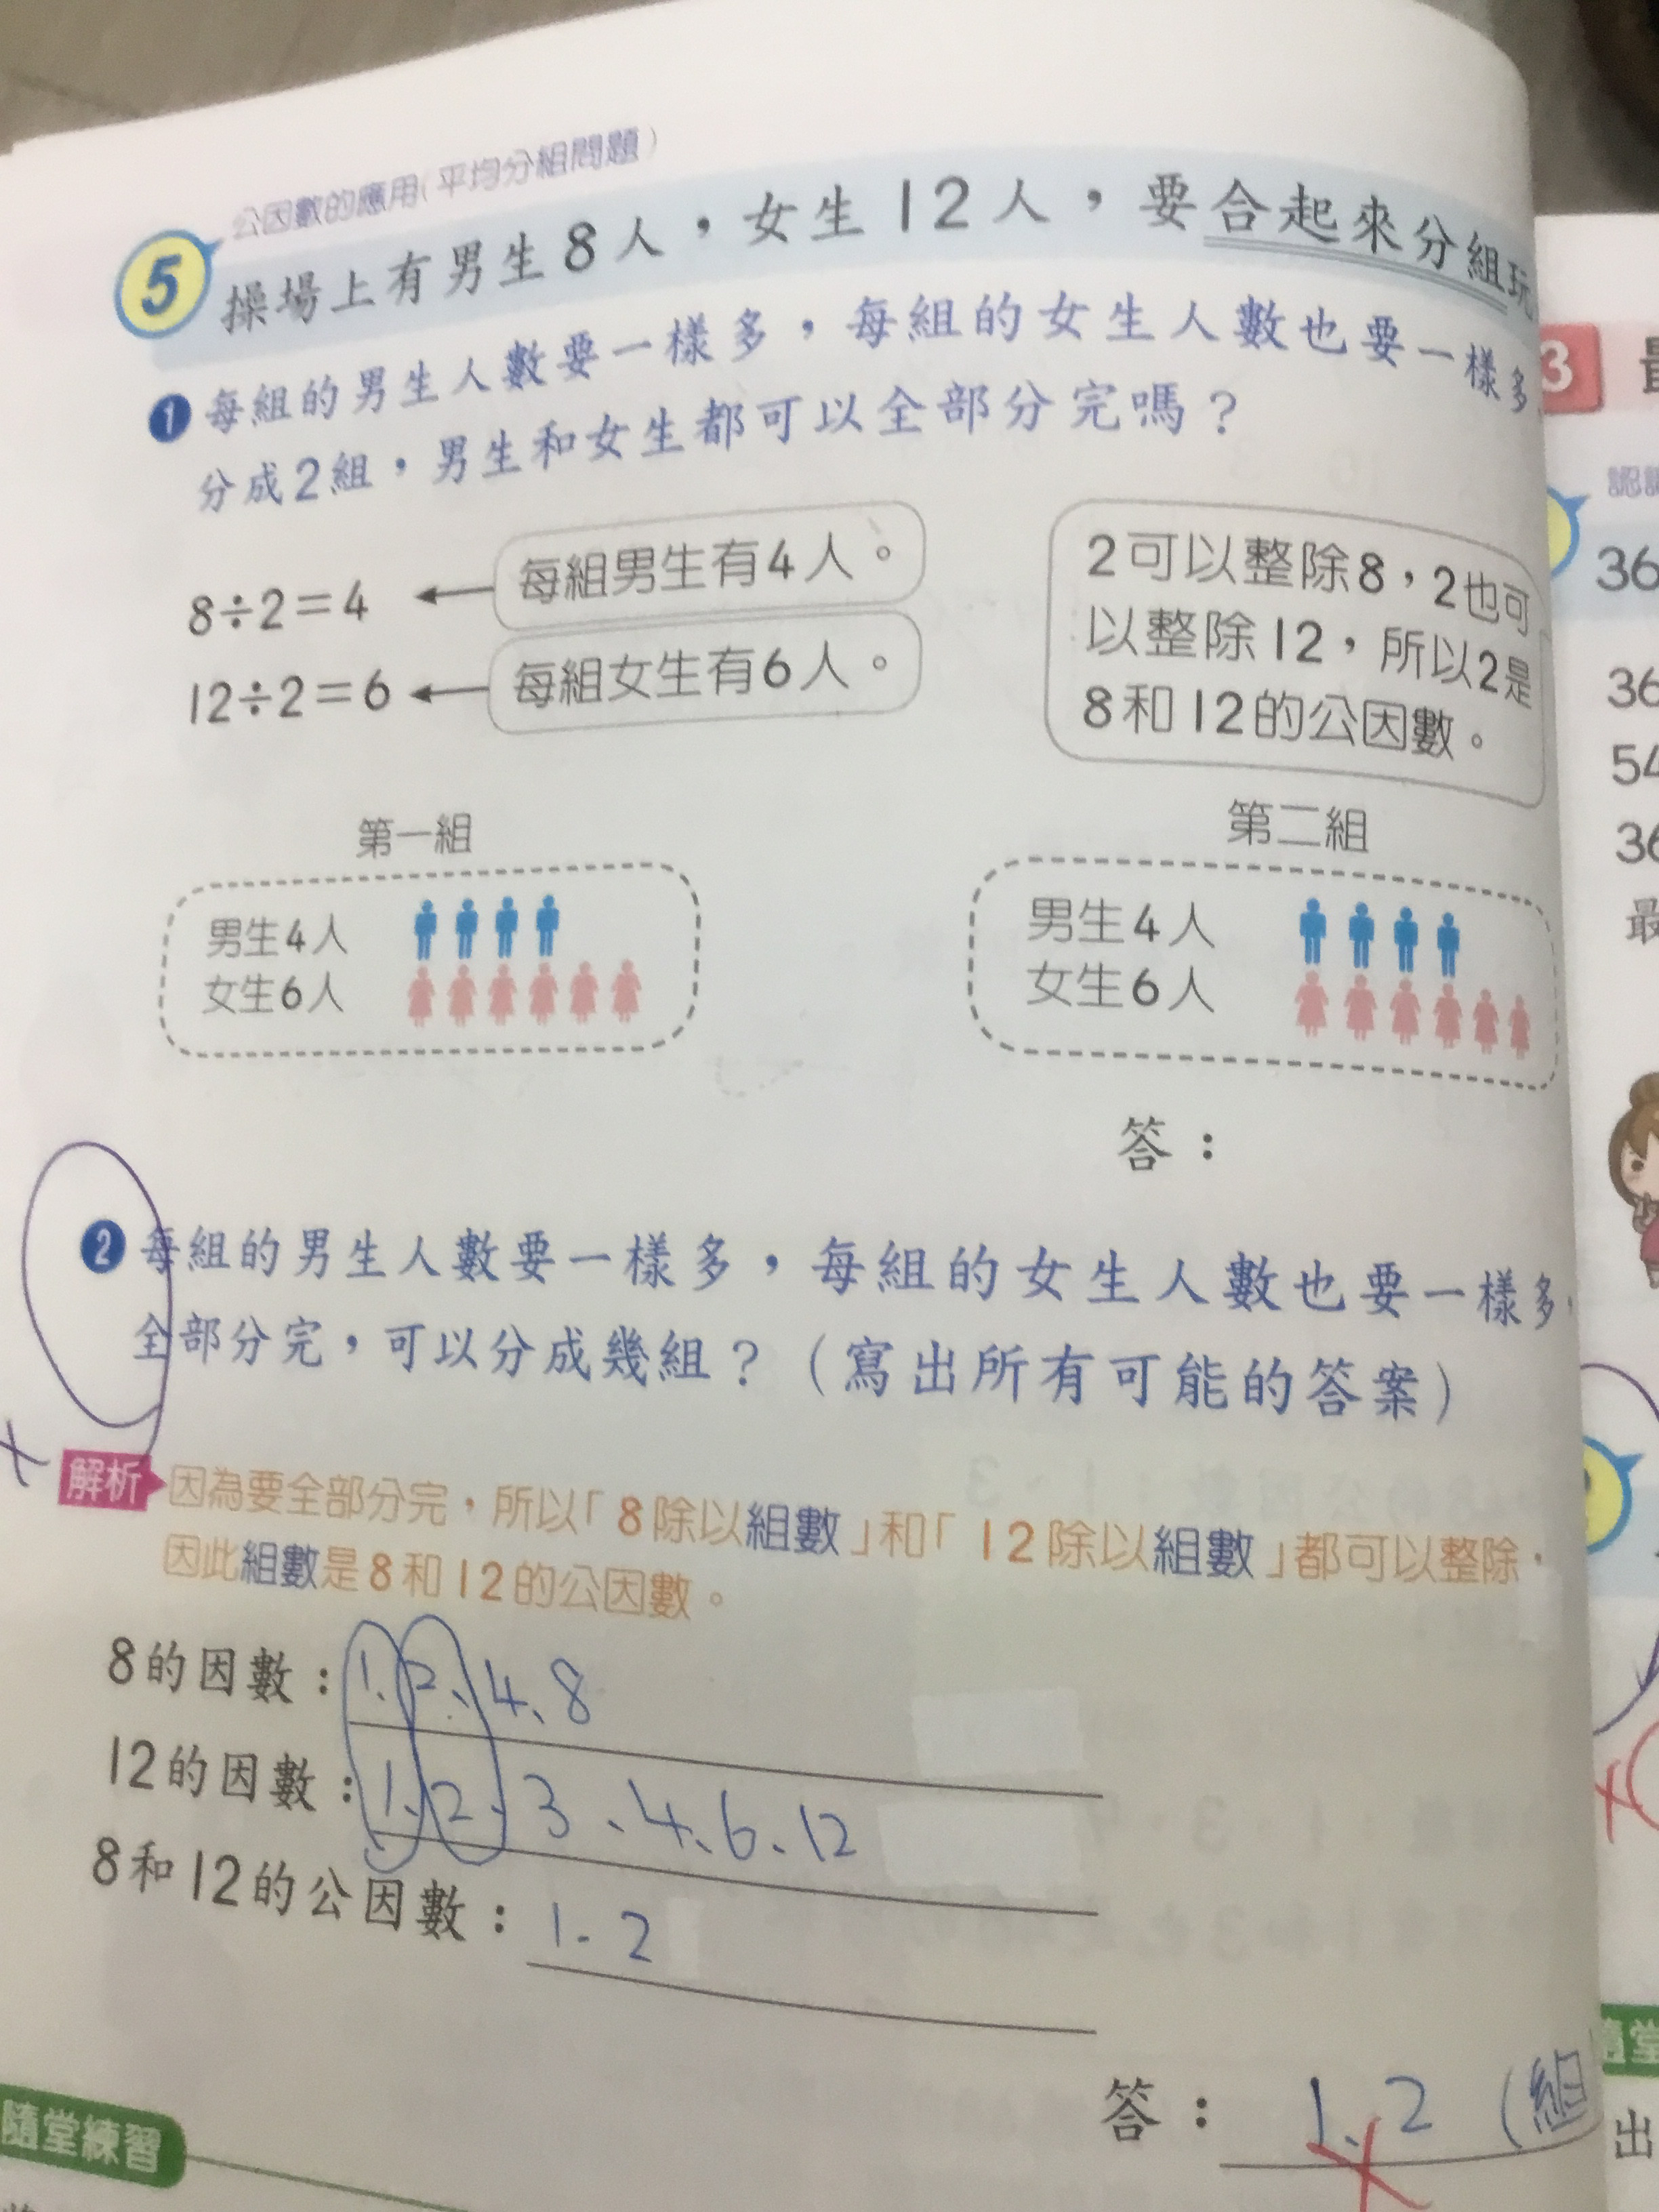 公因數的應用(平均分組問題)
5 操場上有男生8人,女生12人,要合起來分組玩
1 每組的男生人數要一樣多,每組的女生人數也要一樣多,
分成2組,男生和女生都可以全部分完嗎?
8÷2=4 每組男生有4人。
12÷2=6 每組女生有6人。
2可以整除8,2也可
以整除12,所以2是
8和12的公因數。
第一組
男生4人
女生6人
第二組
男生4人
女生6人
答:
2 每組的男生人數要一樣多,每組的女生人數也要一樣多,
全部分完,可以分成幾組?(寫出所有可能的答案)
解析 因為要全部分完,所以「8除以組數」和「12除以組數」都可以整除,
因此組數是8和12的公因數。
8的因數:1、2、4、8
12的因數:1、2、3、4、6、12
8和12的公因數:1、2
答:1、2(組
隨堂練習
3
36
36
54
36
最
隨堂
出